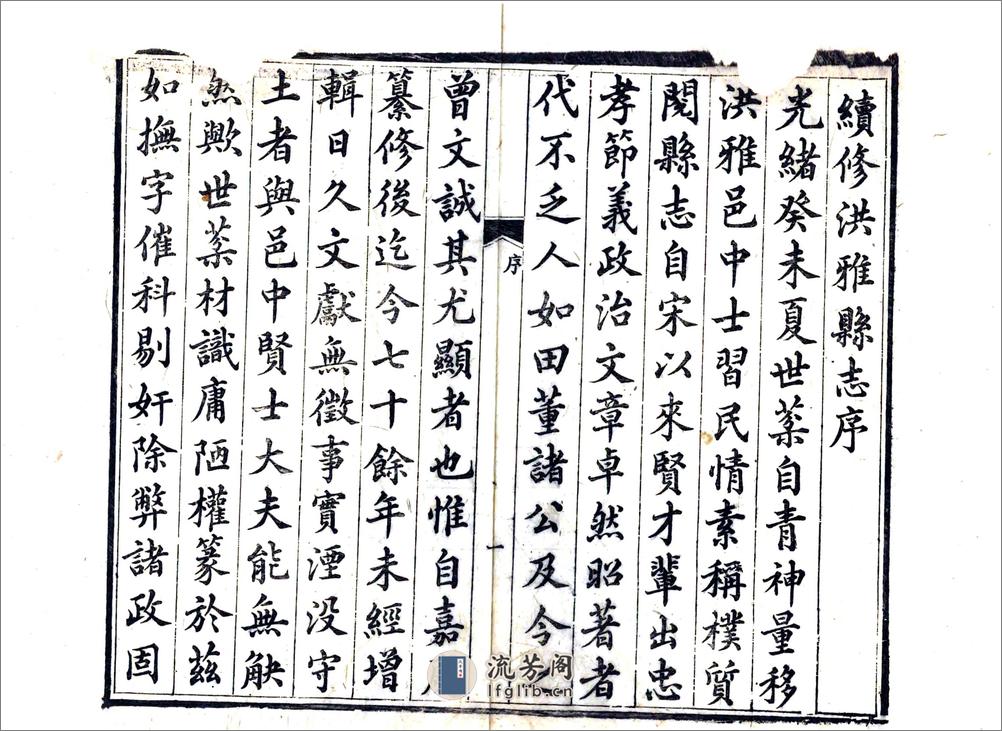 續修洪雅縣志序
光緒癸未夏世棻自青神量移
洪雅邑中士習民情素稱樸質
閱縣志自宋以來賢才輩出忠
孝節義政治文章卓然昭著者
代不乏人如田董諸公及今
序
一
曾文誠其尤顯者也惟自嘉
纂修後迄今七十餘年未經增
輯日久文獻無徵事實湮没守
土者與邑中賢士大夫能無觖
然歟世棻材識庸陋權篆於茲
如撫字催科剔奸除弊諸政固
流芳阁
lfglib.cn